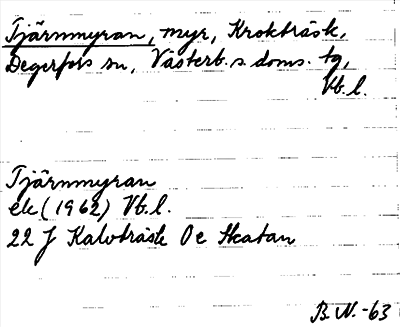 Tjärnmyran, myr, Krokträsk,
Degerfors sn, Västerb. s. doms. tg,
Vb. l.
Tjärnmyran
ek (1962) Vb. l.
22 J Kalvträsk 0e Skatan
B. W. -63